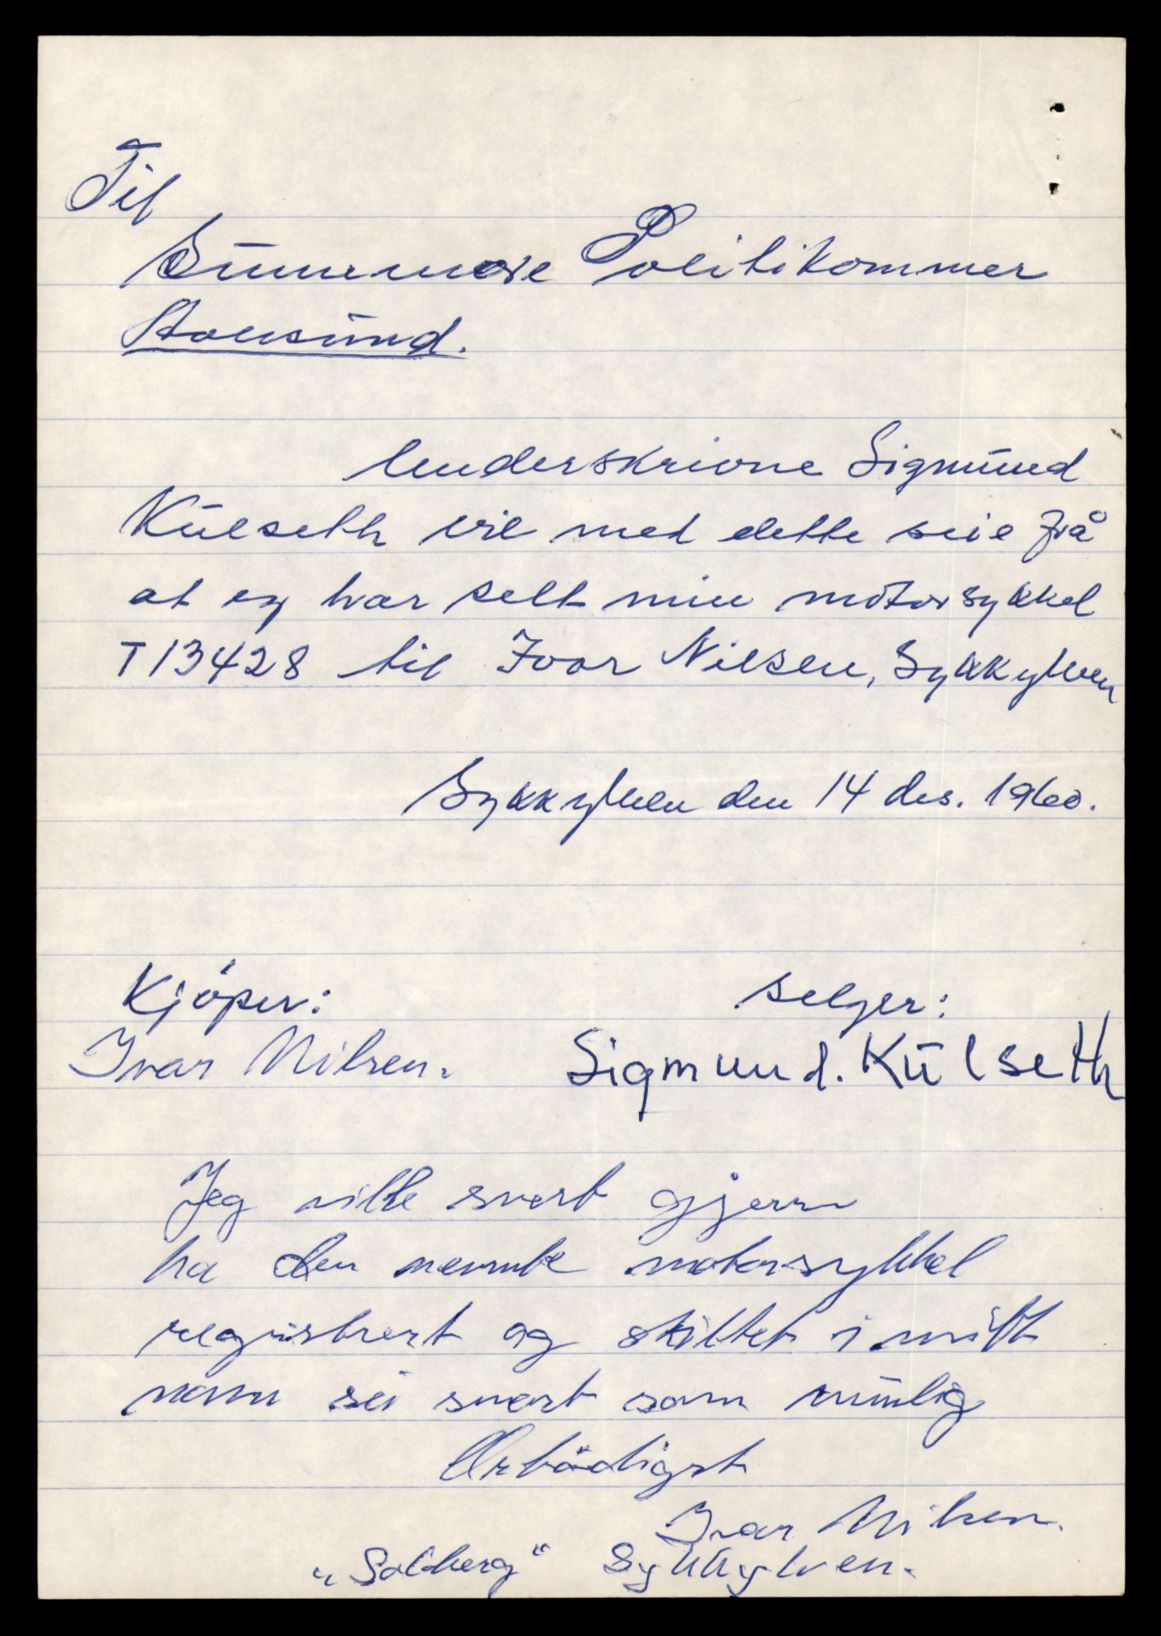 Til
Sunnmøre Politikommer
Aalesund.
Underskrivne Sigmund
Kulseth vil med dette seie frå
at eg har selt min motorsykkel
T13428 til Ivar Nilsen, Sykkylven
Sykkylven den 14 des. 1960.
Kjöper: selger:
Ivar Nilsen. Sigmund. Kulseth
Jeg ville svert gjerne
ha den nevnte motorsykkel
registrert og skiltet i mitt
navn så snart som mulig
Ærbödigst
Ivar Nilsen.
„Solberg" Sykkylven.